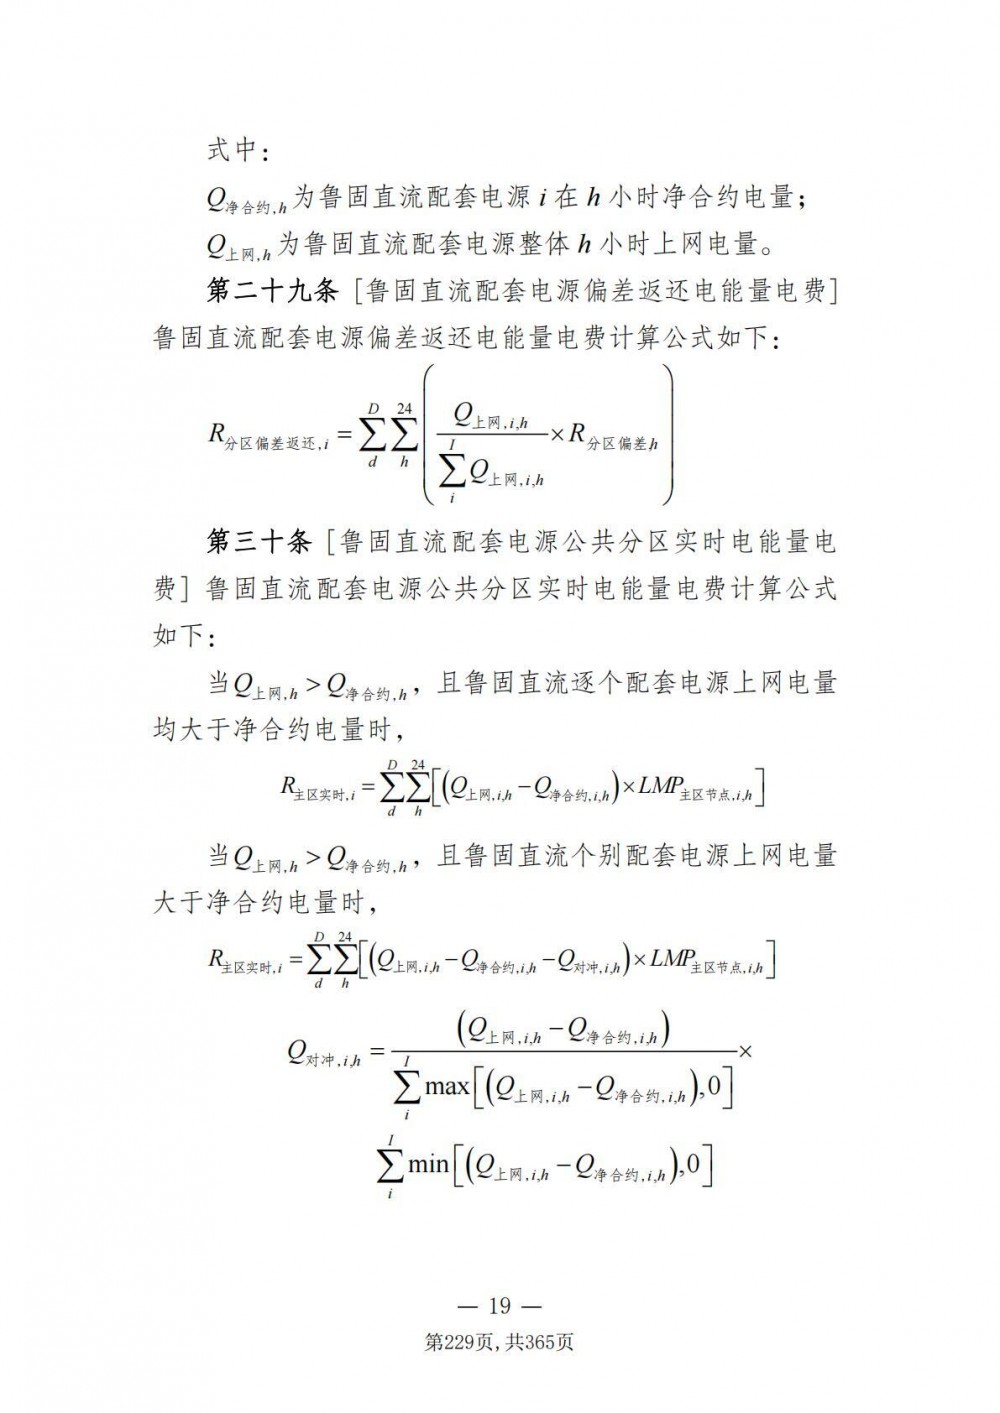 式中：
Q净合约,h为鲁固直流配套电源 i 在 h 小时净合约电量；
Q上网,h为鲁固直流配套电源整体 h 小时上网电量。
第二十九条［鲁固直流配套电源偏差返还电能量电费］
鲁固直流配套电源偏差返还电能量电费计算公式如下：
R分区偏差返还,i = ∑(d, D) ∑(h, 24) ( Q上网,i,h / ∑(i, I) Q上网,i,h × R分区偏差h )
第三十条［鲁固直流配套电源公共分区实时电能量电
费］鲁固直流配套电源公共分区实时电能量电费计算公式
如下：
当Q上网,h > Q净合约,h，且鲁固直流逐个配套电源上网电量
均大于净合约电量时，
R主区实时,i = ∑(d, D) ∑(h, 24) [(Q上网,i,h − Q净合约,i,h) × LMP主区节点,i,h]
当Q上网,h > Q净合约,h，且鲁固直流个别配套电源上网电量
大于净合约电量时，
R主区实时,i = ∑(d, D) ∑(h, 24) [(Q上网,i,h − Q净合约,i,h − Q对冲,i,h) × LMP主区节点,i,h]
Q对冲,i,h = (Q上网,i,h − Q净合约,i,h) / ∑(i, I) max[(Q上网,i,h − Q净合约,i,h),0] ×
∑(i, I) min[(Q上网,i,h − Q净合约,i,h),0]
— 19 —
第229页,共365页